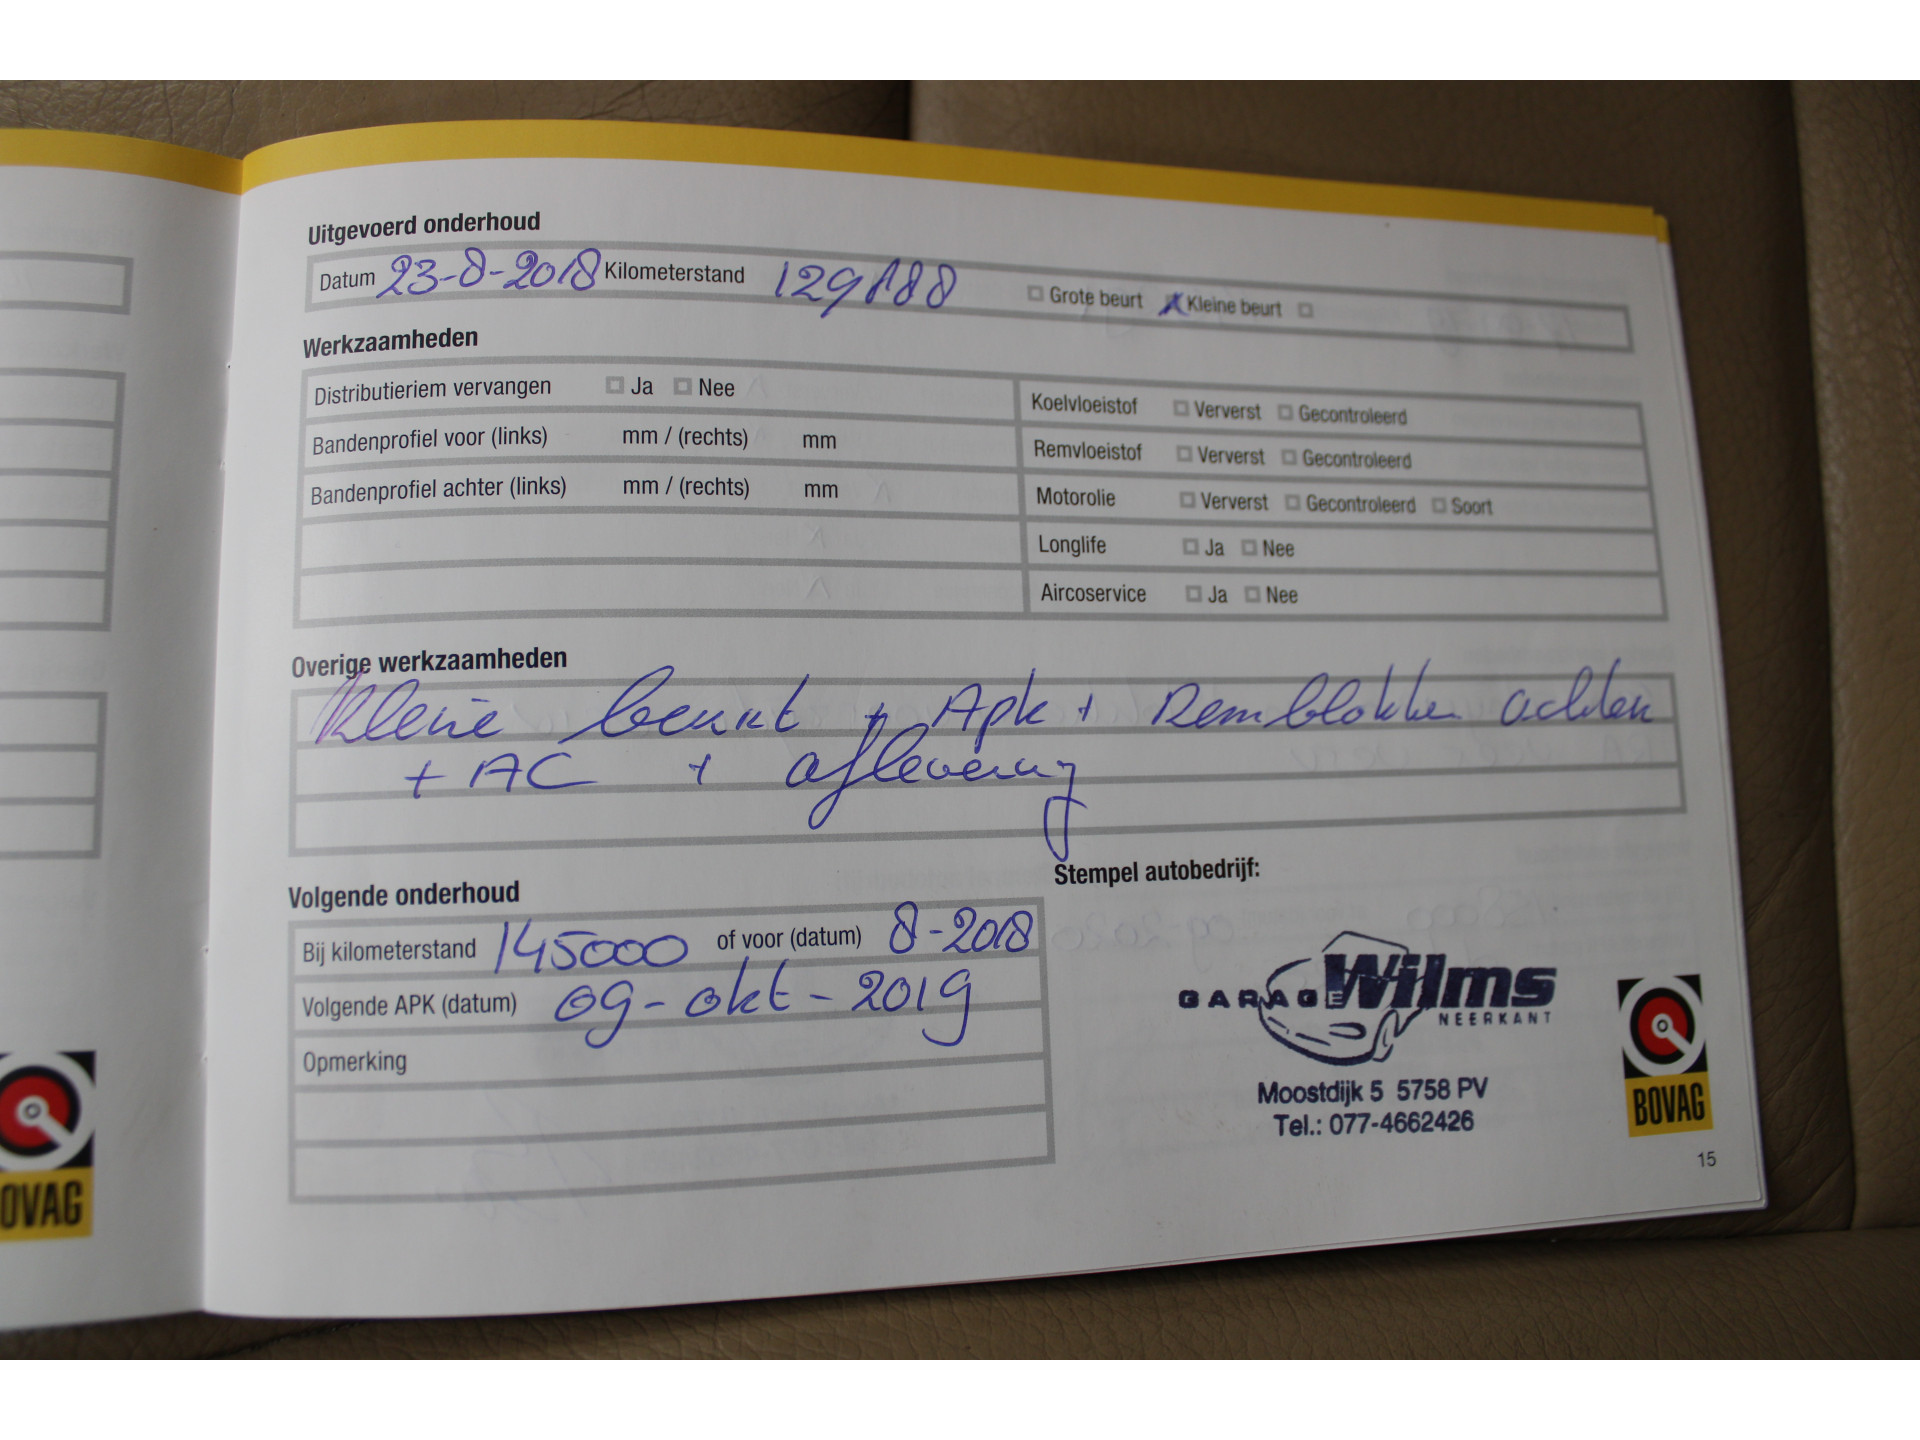 Uitgevoerd onderhoud
Datum 23-8-2018 Kilometerstand 129888 Grote beurt Kleine beurt
Werkzaamheden
Distributieriem vervangen Ja Nee
Bandenprofiel voor (links) mm / (rechts) mm
Bandenprofiel achter (links) mm / (rechts) mm
Koelvloeistof Ververst Gecontroleerd
Remvloeistof Ververst Gecontroleerd
Motorolie Ververst Gecontroleerd Soort
Longlife Ja Nee
Aircoservice Ja Nee
Overige werkzaamheden
Kleine beurt + Apk + Remblokken achter
+ AC + aflevering
Volgende onderhoud
Bij kilometerstand 145000 of voor (datum) 8-2018
Volgende APK (datum) 09-okt-2019
Opmerking
Stempel autobedrijf:
GARAGE Wilms
NEERKANT
Moostdijk 5 5758 PV
Tel.: 077-4662426
BOVAG
15
OVAG